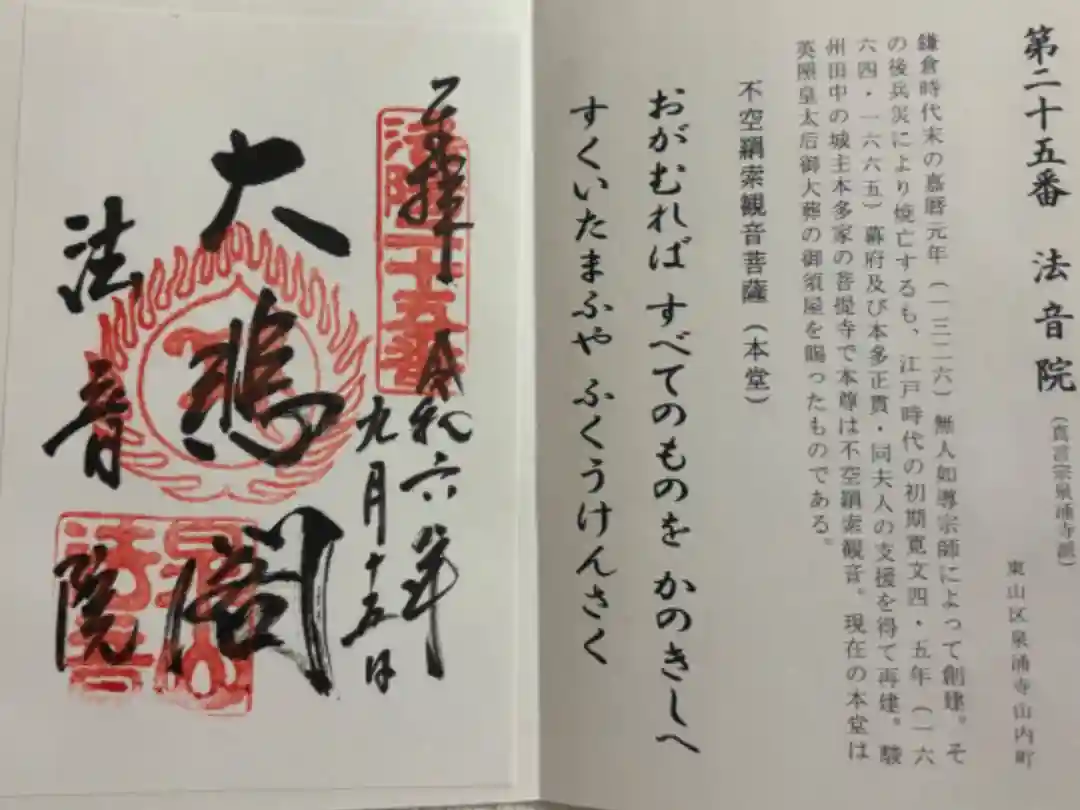 第二十五番 法音院
(真言宗泉涌寺派)
東山区泉涌寺山内町
鎌倉時代末の嘉暦元年(一三二六)無人如導宗師によって創建。そ
の後兵災により焼亡するも、江戸時代の初期寛文四・五年(一六
六四・一六六五)幕府及び本多正貫・同夫人の支援を得て再建。駿
州田中の城主本多家の菩提寺で本尊は不空羂索観音。現在の本堂は
英照皇太后御大葬の御須屋を賜ったものである。
不空羂索観音菩薩(本堂)
おがむれば すべてのものを かのきしへ
すくいたまふや ふくうけんさく
奉拝
令和六年
九月十五日
大悲閣
法音院
洛陽二十五番